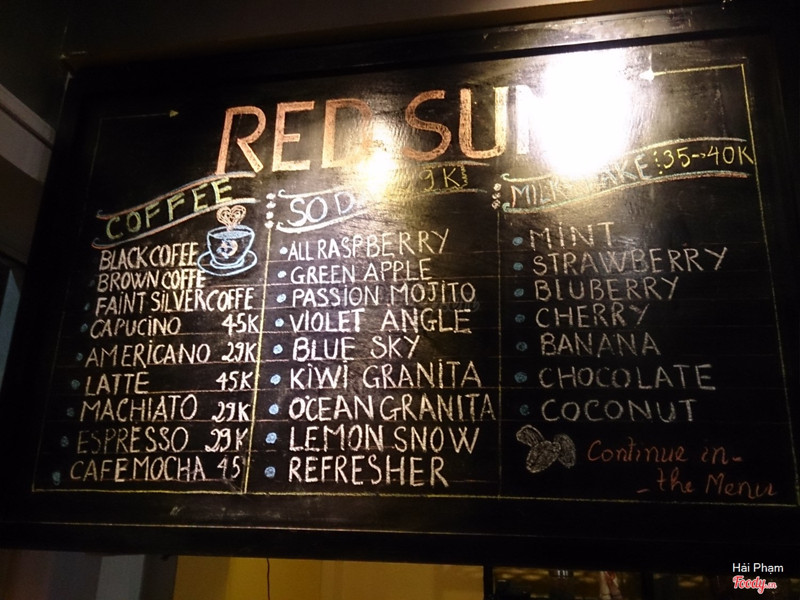 RED SUN
COFFEE
BLACK COFEE
BROWN COFFE
FAINT SILVER COFFE
CAPUCINO 45K
AMERICANO 29K
LATTE 45K
MACHIATO 29K
ESPRESSO 29K
CAFE MOCHA 45
SODA 9K
ALL RASPBERRY
GREEN APPLE
PASSION MOJITO
VIOLET ANGLE
BLUE SKY
KIWI GRANITA
OCEAN GRANITA
LEMON SNOW
REFRESHER
MILKSHAKE: 35-40K
MINT
STRAWBERRY
BLUBERRY
CHERRY
BANANA
CHOCOLATE
COCONUT
Continue in-
- the Menu
Hải Phạm
Foody.vn